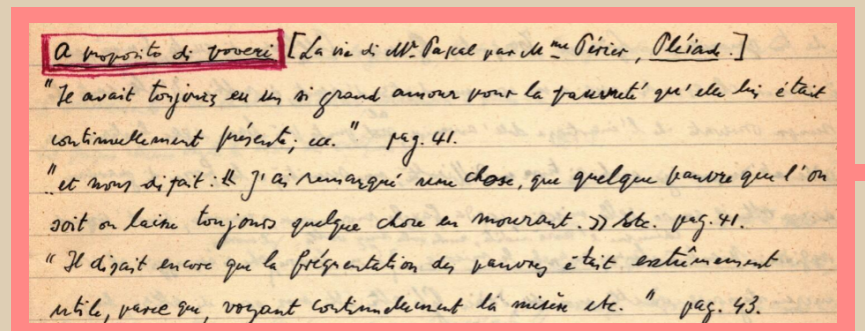 A proposito di poveri [La vie di Mr Pascal par Mme Périer, Pléiade.]
"Il avait toujours eu un si grand amour pour la pauvreté qu'elle lui était
continuellement présente; ecc." pag. 41.
"et nous disait: «J'ai remarqué une chose, que quelque pauvre que l'on
soit on laisse toujours quelque chose en mourant.» etc. pag. 41.
"Il disait encore que la fréquentation des pauvres était extrêmement
utile, parce que, voyant continuellement la misère etc." pag. 43.